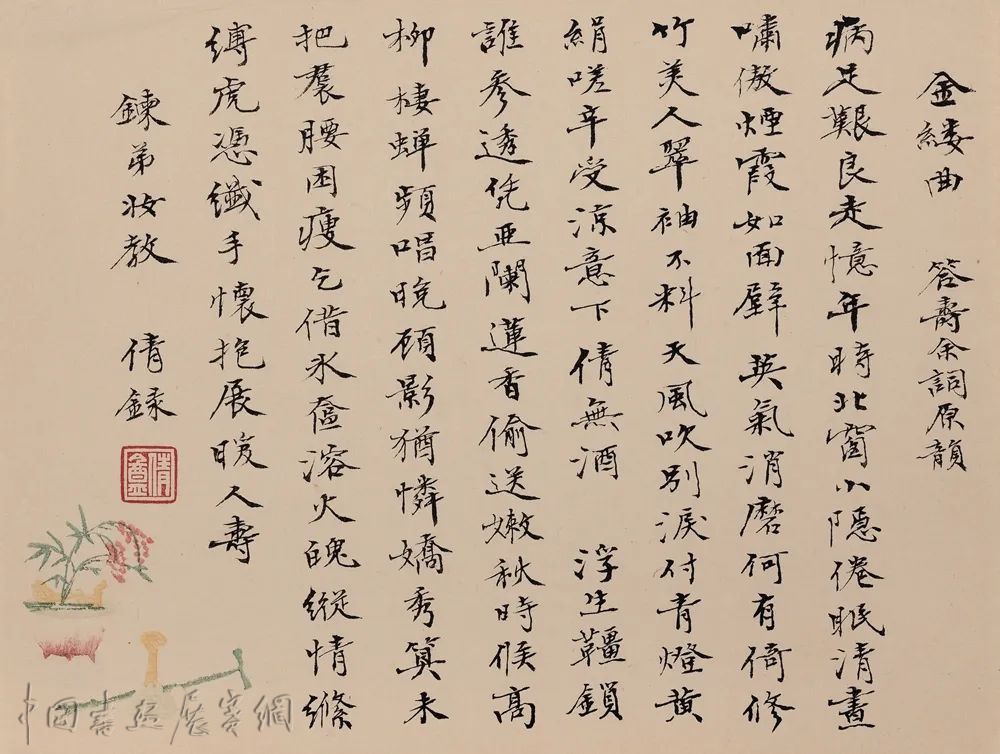 金縷曲　答壽余詞原韻
病足艱良走憶年時北窗小隱倦眠清晝
嘯傲煙霞如面壁英氣消磨何有倚修
竹美人翠袖不料天風吹別淚付青燈黃
絹嗟辛受涼意下倩無酒　浮生韁鎖
誰參透凭亞闌蓮香偷送嫩秋時候高
柳棲蟬頻唱晚顧影猶憐嬌秀算未
把裙腰困瘦乞借冰奩溶火魄縱情絲
縛虎憑纖手懷抱展暖人壽
鍊弟妝教　倩錄
倩盦
中国書法展賽網